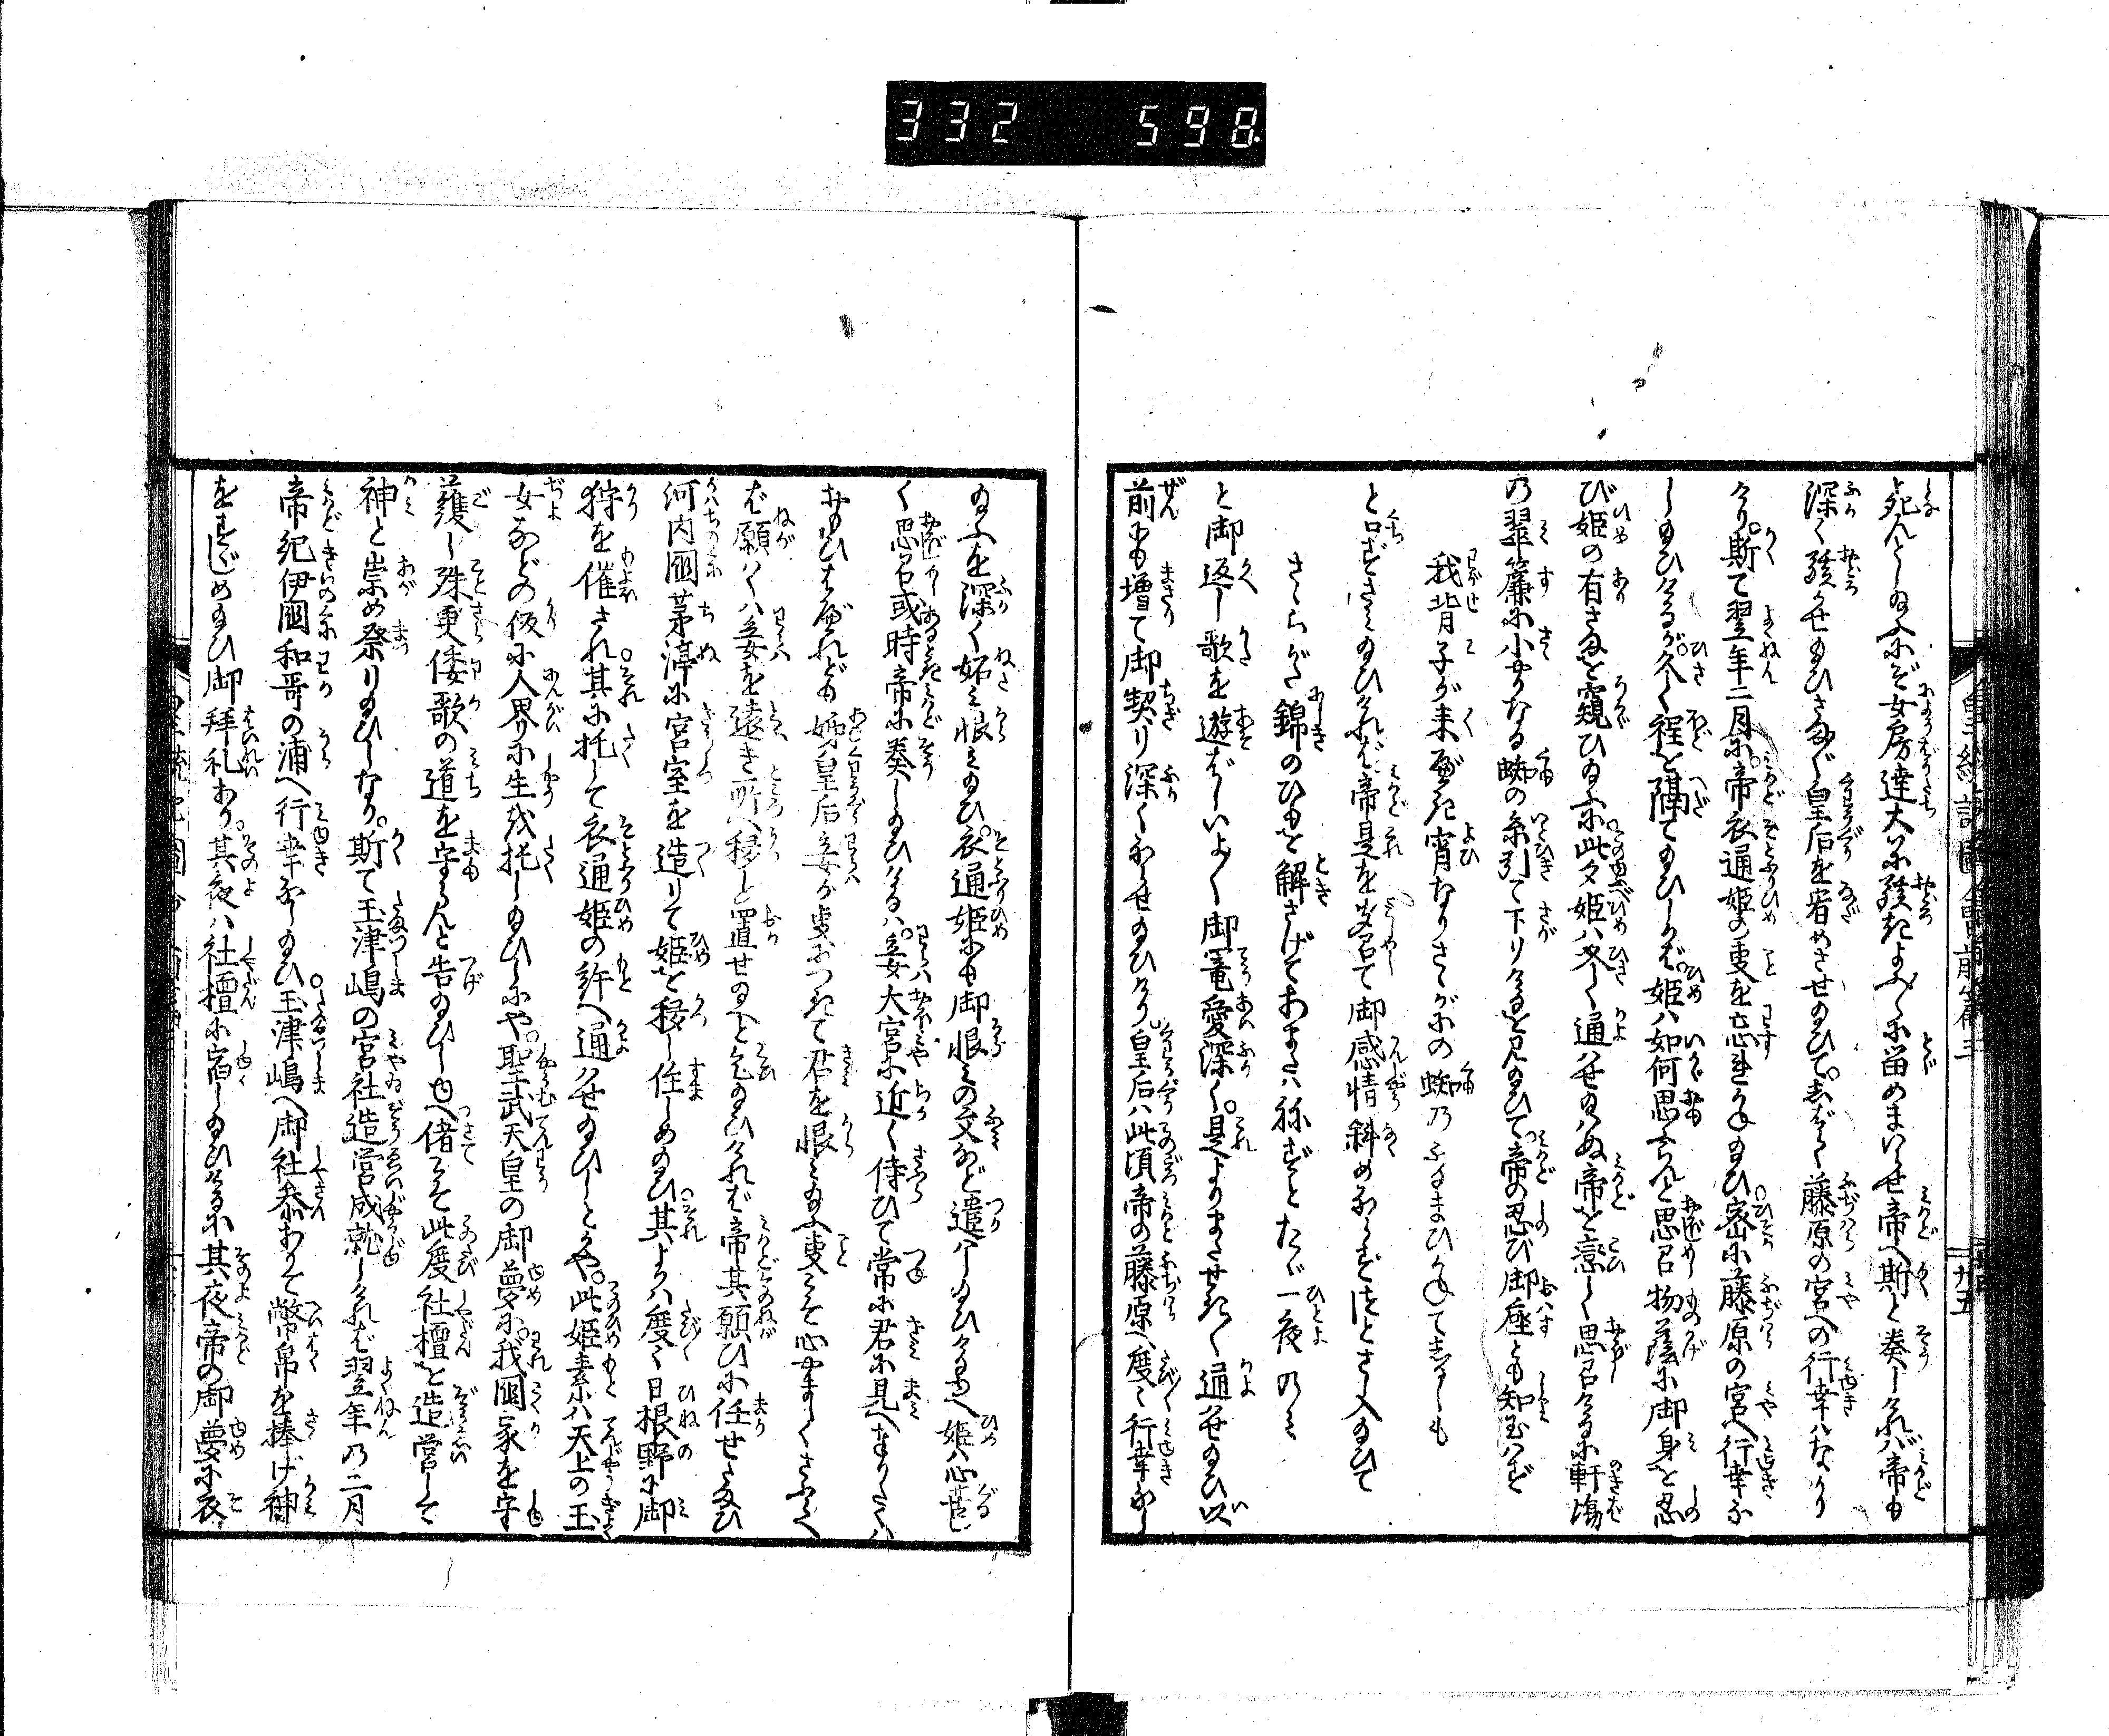 332 598
皇統記図会前篇三 廿五
と死んとし給ふにぞ女房達大に驚きよふ〳〵に留めまいらせ帝へ斯と奏しければ帝も
深く驚かせ給ひさま〴〵皇后を宥めさせ給ひて。しばらく藤原の宮への行幸はなかり
けり。斯て翌年二月に。帝衣通姫の事を忘れかね給ひ密に藤原の宮へ行幸な
し給ひけるが。久しく程を隔て給ひしかば。姫は如何思ふらんと思召物蔭に御身を忍
び姫の有さまを窺ひ給ふに此夕姫は久しく通はせ給はぬ帝を恋しく思召けるに軒場
の翠簾に小やかなる蜘の糸引て下りけるを見給ひて。帝の忍び御座とも知玉はず
我背子が来べき宵なりさゝがにの蜘のふるまひかねてしるしも
と口ずさみ給ひければ。帝是を聞召て御感情斜めならずつとさし入給ひて
さゝらがた錦のひもを解さげてあまたは祢ずとたゞ一夜のミ
と御返し歌を遊ばしいよ〳〵御寵愛深く。是よりまたせき〳〵通はせ給ひ以
前にも増て御契り深くわたらせ給ひけり。皇后は此頃帝の藤原へ度々行幸なし
給ふを深く妬ミ恨ミ給ひ。衣通姫にも御恨ミの文など遣はし給ひけるゆへ姫は心苦し
く思召或時帝に奏し給ひけるは。妾大宮に近く侍ひて常に君に見へまゐらせたくは
おもひはべれども姉皇后妾が事につきて君を恨ミ給ふ事こそ心やましくさふらへ
ば願くは妾を遠き所へ移し置せ給へと乞給ひければ帝其願ひに任せたまひ
河内国茅渟に宮室を造りて姫を移し住しめ給ひ。其よりは度々日根野に御
狩を催され。其に托して衣通姫の許へ通はせ給ひしとかや。此姫素は天上の玉
女なるの仮に人界に生を托し給ひしにや。聖武天皇の御夢に。我国家を守
護し殊更倭歌の道を守らんと告給ひしゆへ偖こそ此度社檀を造営して
神と崇め祭り給ひしなり。斯て玉津嶋の宮社造営成就しければ翌年の二月
帝紀伊国和哥の浦へ行幸なし給ひ。玉津嶋へ御社参ありて幣帛を捧げ神
をすゞしめ給ひ御拜礼あり。其夜は社檀に宿し給ひけるに其夜帝の御夢に衣